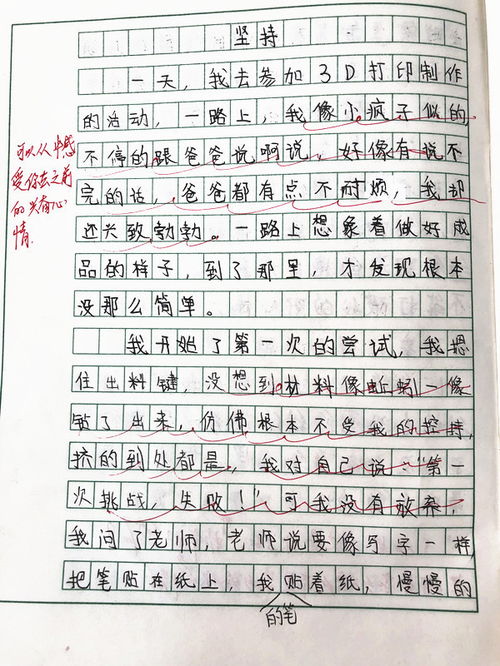 坚持
一天，我去参加3D打印制作
的活动，一路上，我像小疯子似的，
不停的跟爸爸说啊说，好像有说不
完的话，爸爸都有点不耐烦，我却
还兴致勃勃。一路上想象着做好成
品的样子，到了那里，才发现根本
没那么简单。
我开始了第一次的尝试，我摁
住出料键，没想到材料像蚯蚓一像
钻了出来，仿佛根本不受我的控持，
挤的到处都是，我对自己说“第一
次挑战，失败！”可我没有放弃，
我问了老师，老师说要像写字一样，
把笔贴在纸上，我贴着纸，慢慢的
的笔
可以从中感
受你去之前
的兴奋心
情.